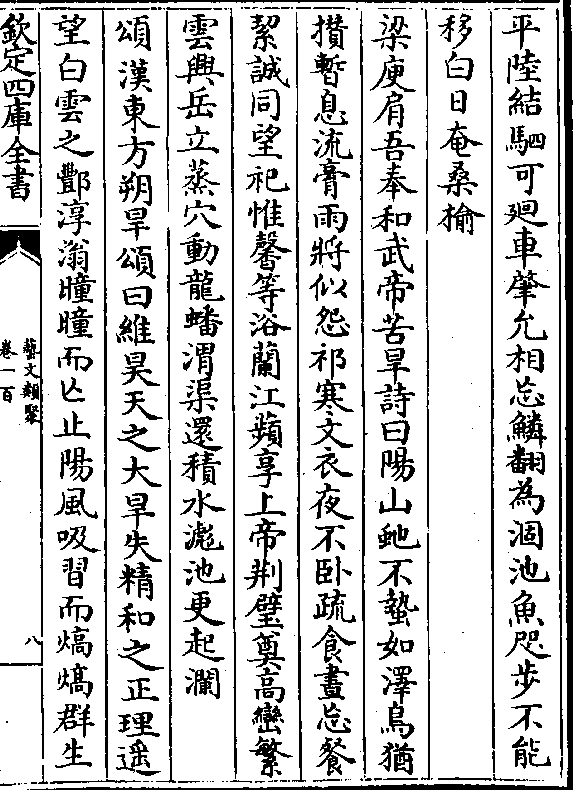 平陸結駟可廻車肇允相忘鱗翻為涸池魚咫步不能
移白日奄桑榆
梁庾肩吾奉和武帝苦旱詩曰陽山虵不蟄如澤鳥猶
攅暫息流膏雨將似怨祁寒文衣夜不卧疏食晝忘餐
絜誠同望祀惟馨等浴蘭江蘋享上帝荆璧奠高巒繁
雲興岳立蒸穴動龍蟠渭渠還積水滮池更起瀾
頌漢東方朔旱頌曰維昊天之大旱失精和之正理遥
望白雲之酆淳滃曈曈而亡止陽風吸習而熇熇群生
欽定四庫全書
藝文類聚
卷一百
八